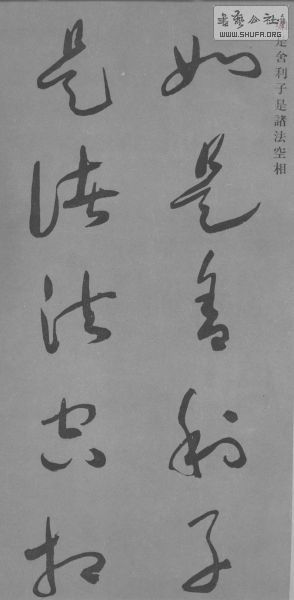 如是舍利子
是諸法空相
是舍利子是諸法空相
書藝公社
WWW.SHUFA.ORG